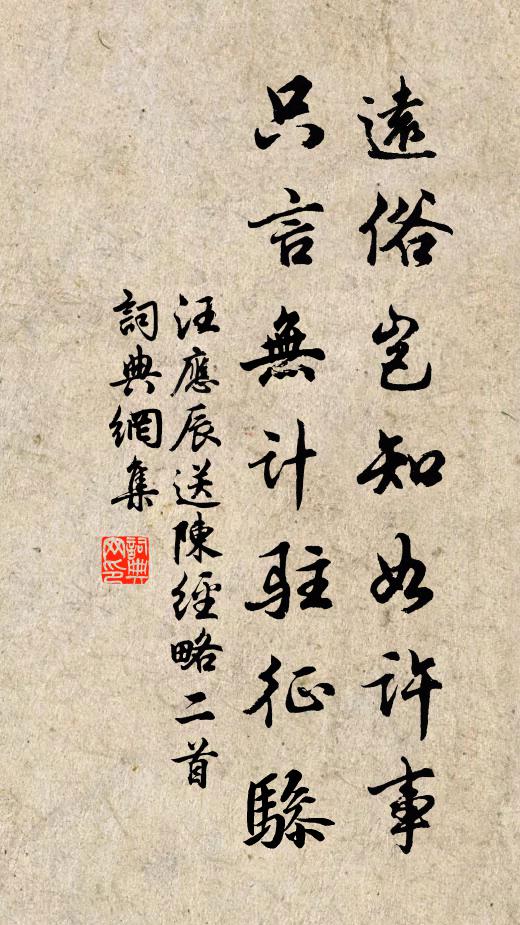 遠俗豈知如許事
只言無計駐征驂
汪應辰送陳經略二首
詞典網集
詞典网印